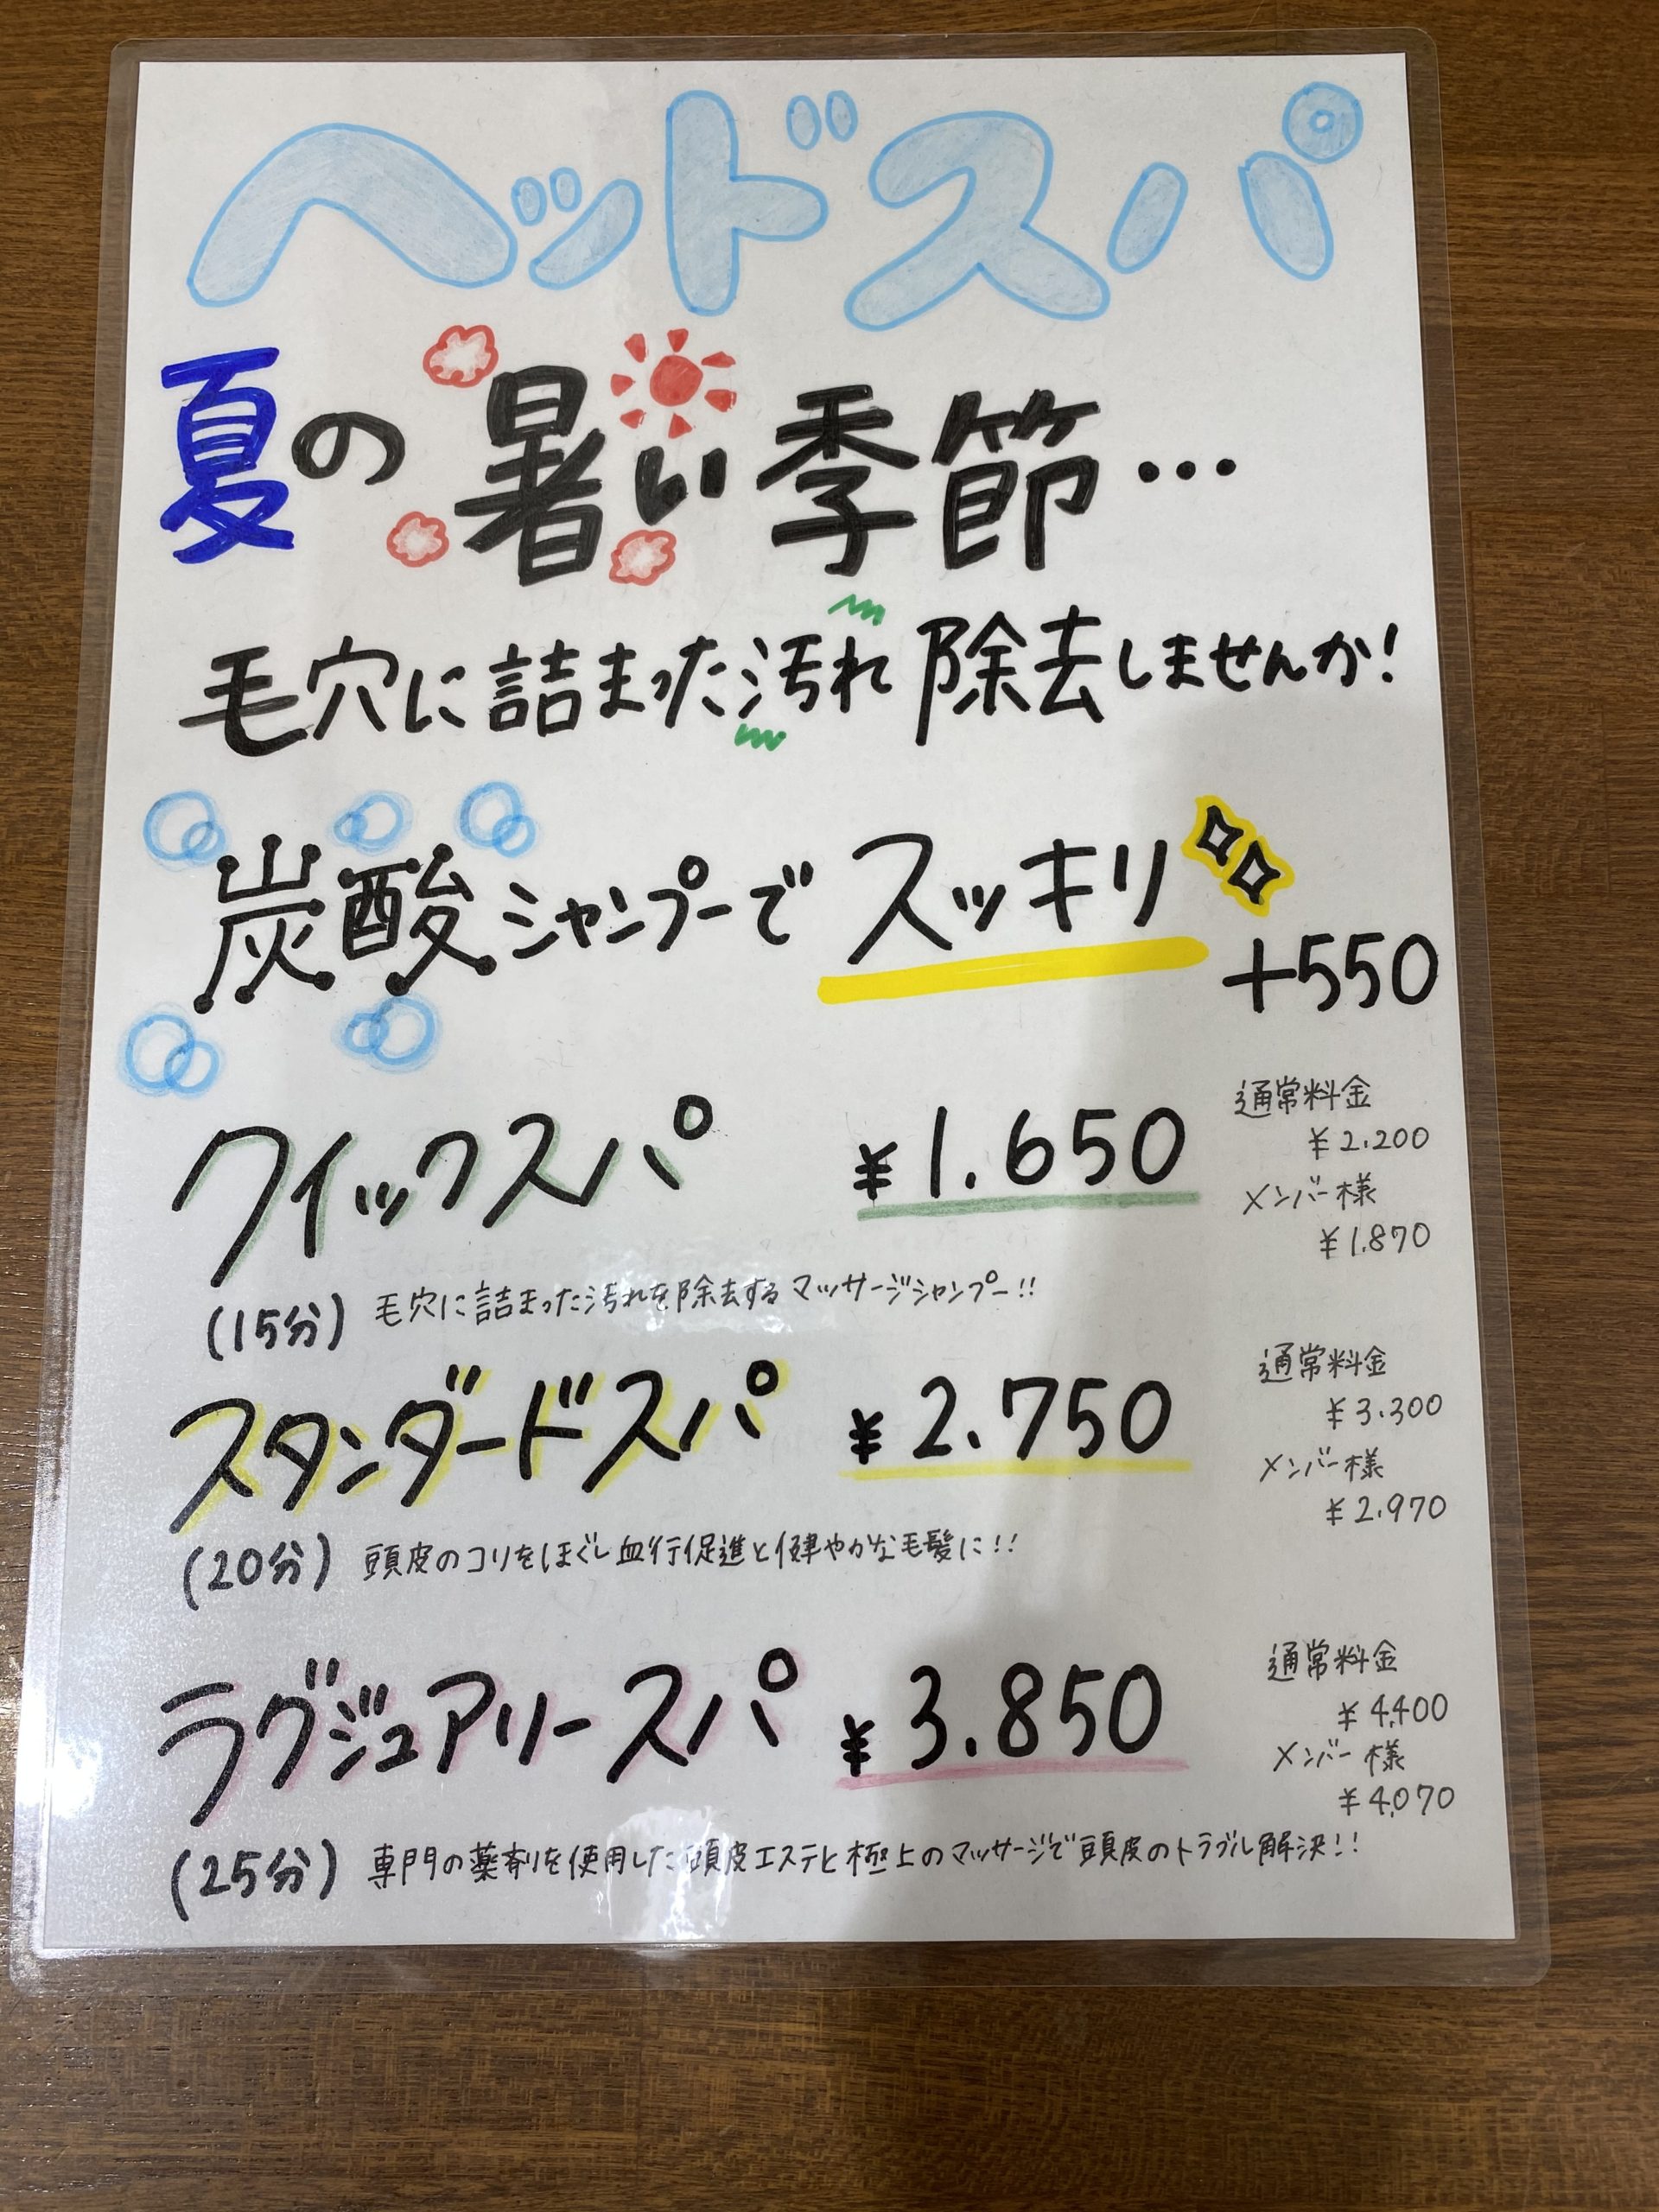 ヘッドスパ
夏の暑い季節…
毛穴に詰まった汚れ除去しませんか!
炭酸シャンプーでスッキリ
+550
クイックスパ ¥1.650
通常料金
¥2.200
メンバー様
¥1.870
(15分) 毛穴に詰まった汚れを除去するマッサージシャンプー!!
スタンダードスパ ¥2.750
通常料金
¥3.300
メンバー様
¥2.970
(20分) 頭皮のコリをほぐし血行促進と健やかな毛髪に!!
ラグジュアリースパ ¥3.850
通常料金
¥4,400
メンバー様
¥4,070
(25分) 専門の薬剤を使用した頭皮エステと極上のマッサージで頭皮のトラブル解決!!